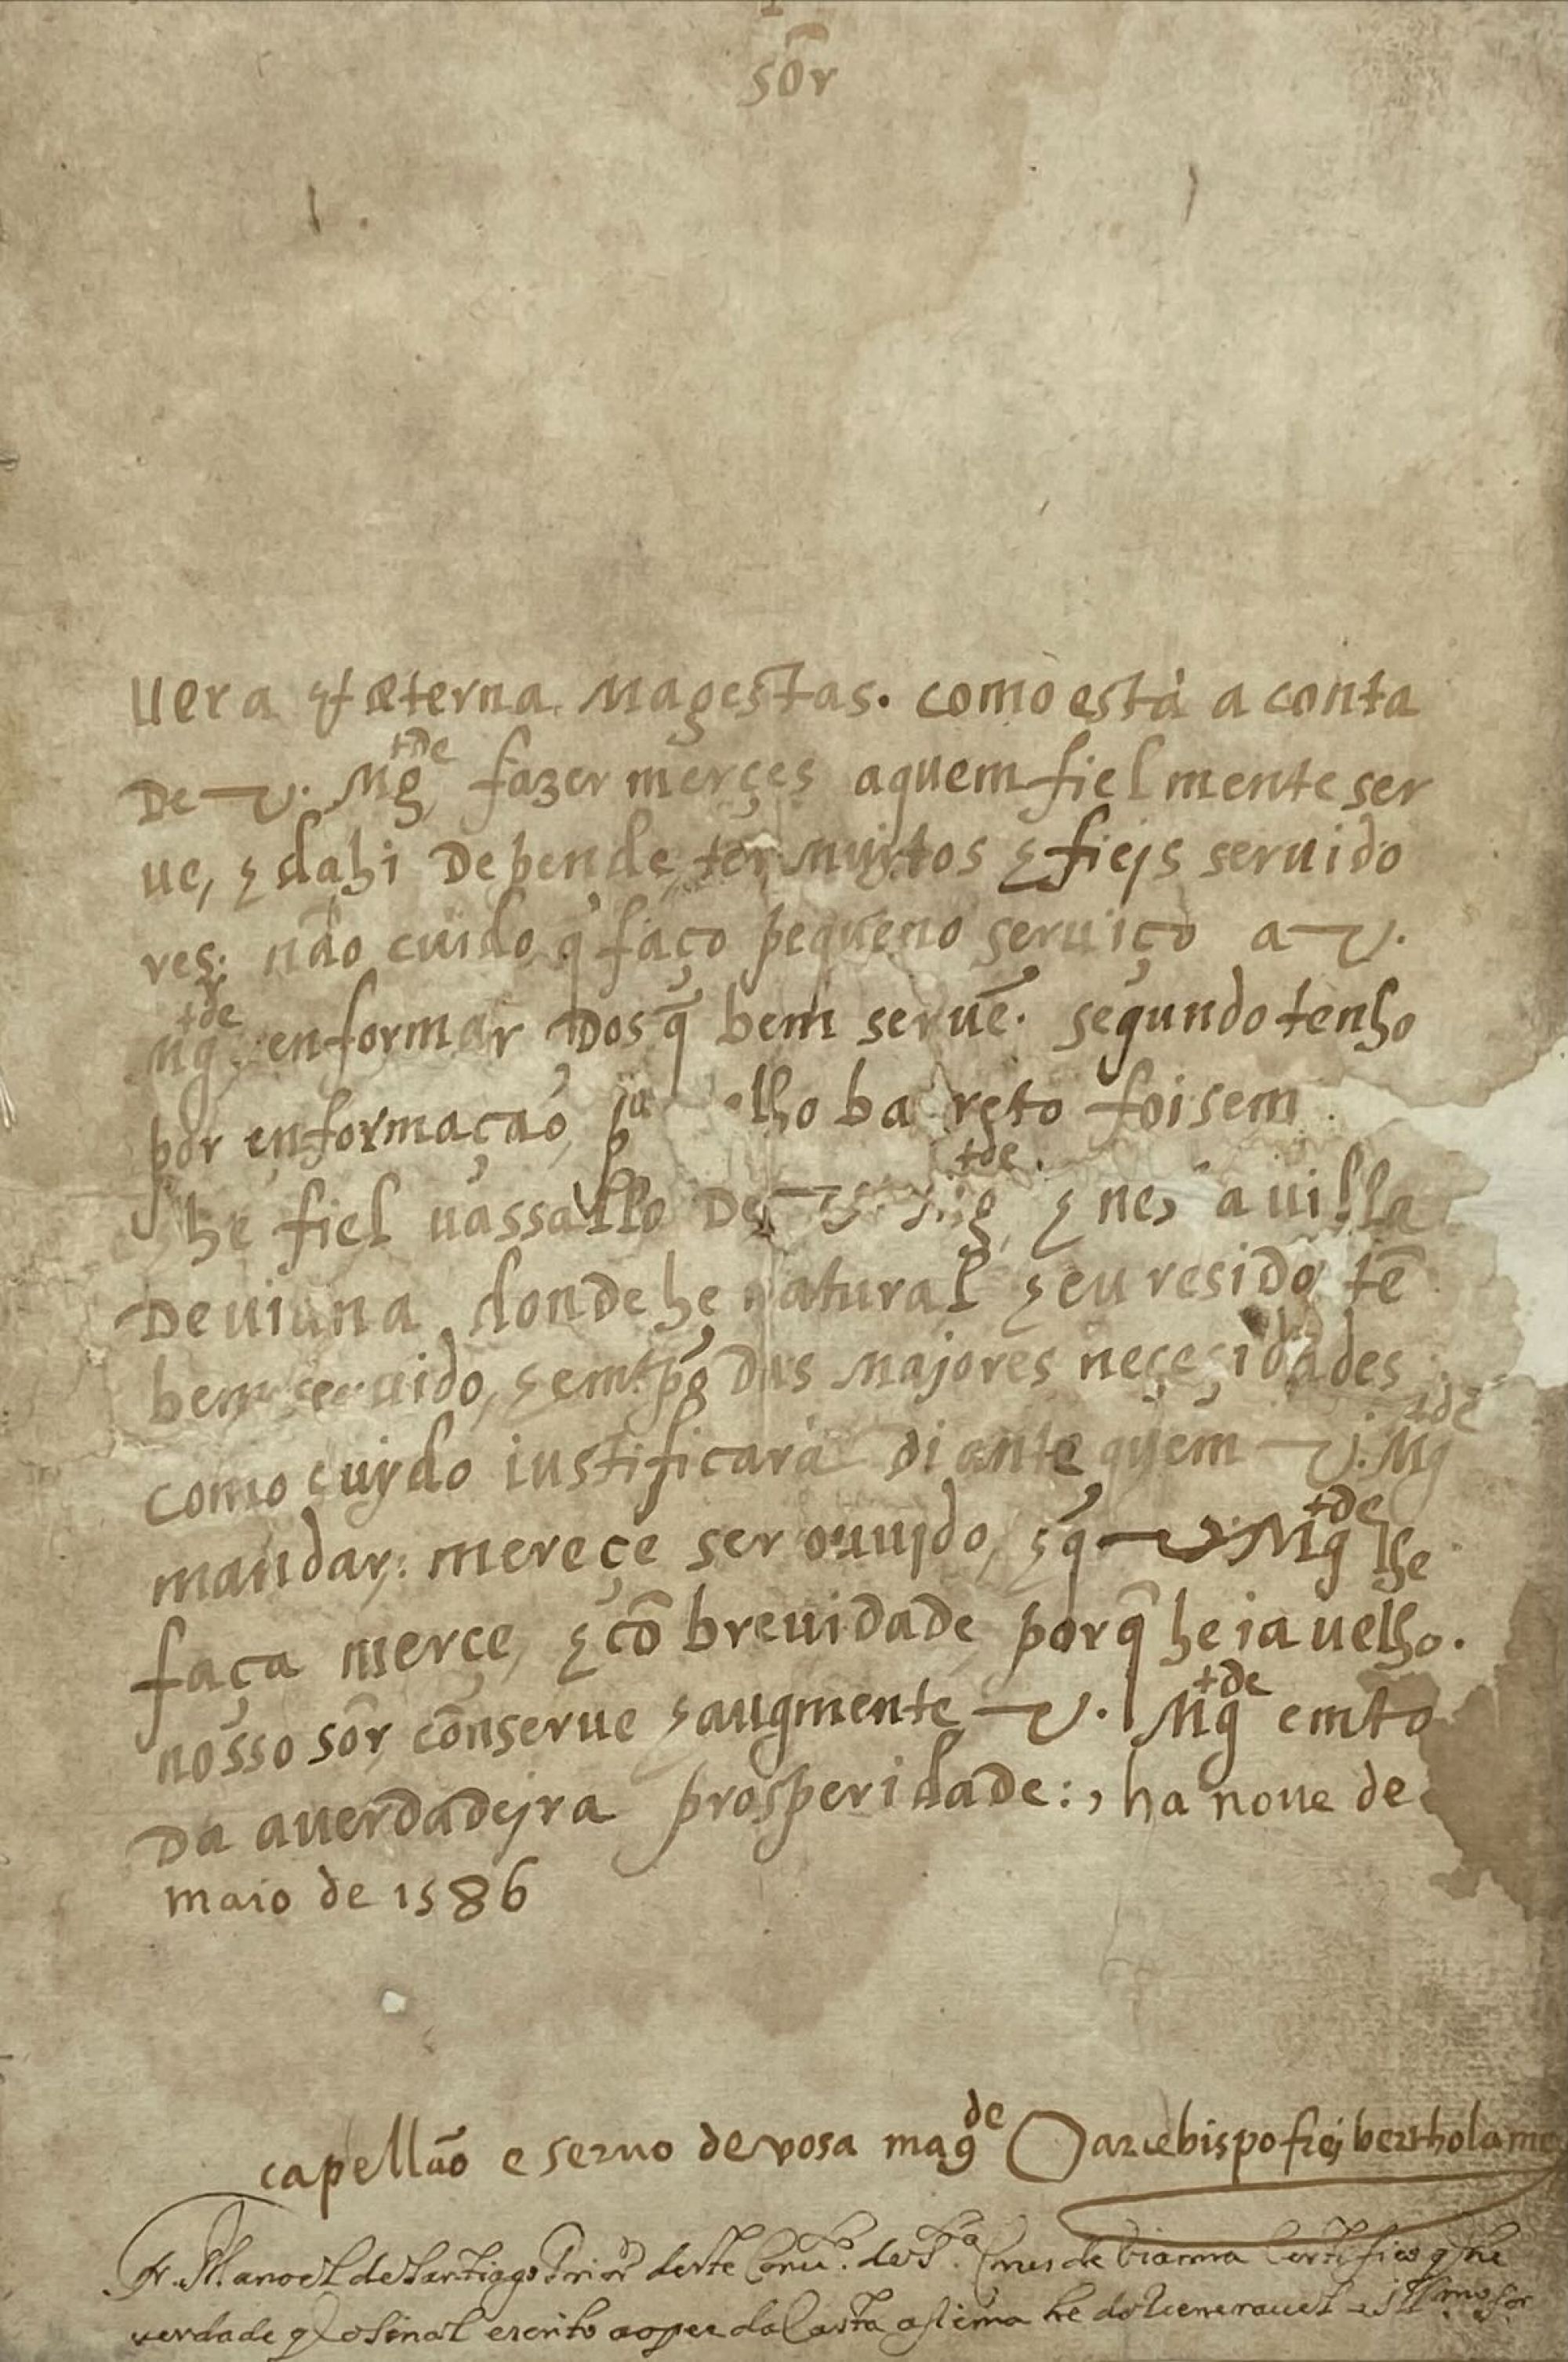 sõr
uera & æterna Magestas. como está a conta
De v. Mg.tde fazer merçes aquem fiel mente ser
ue, e dahi Depende ter muytos e fiejs seruido
res: não cuido q̃ faço pequeno seruiço a v.
Mg.tde enformar Dos q̃ bem seruẽ. segundo tenho
por enformação, lho ba reto foi sem
he fiel uassallo De v. Mg.tde e a uilla
De uiana donde he natural e eu resido tẽ
bem seruido, e Das Majores neçesidades
como cuydo iustificará diante quem v. Mg.tde
mandar: mereçe ser ouuido, e q̃ v. Mg.tde lhe
faça merçe, e cõ breuidade porq̃ he ia uelho.
nosso sõr cõnserue e augmente v. Mg.tde em to
Da auerdadejra prosperidade:, ha noue de
maio de 1586
capellão e seruo de vosa mag.de O arcebispo frej bertholame
fr. Manoel de Santiago Prior deste Conu.to de S.ta Crus de Vianna Certifico q he
verdade q o sinal escrito ao pee da Carta asima he do Veneravel e Ill.mo Sor